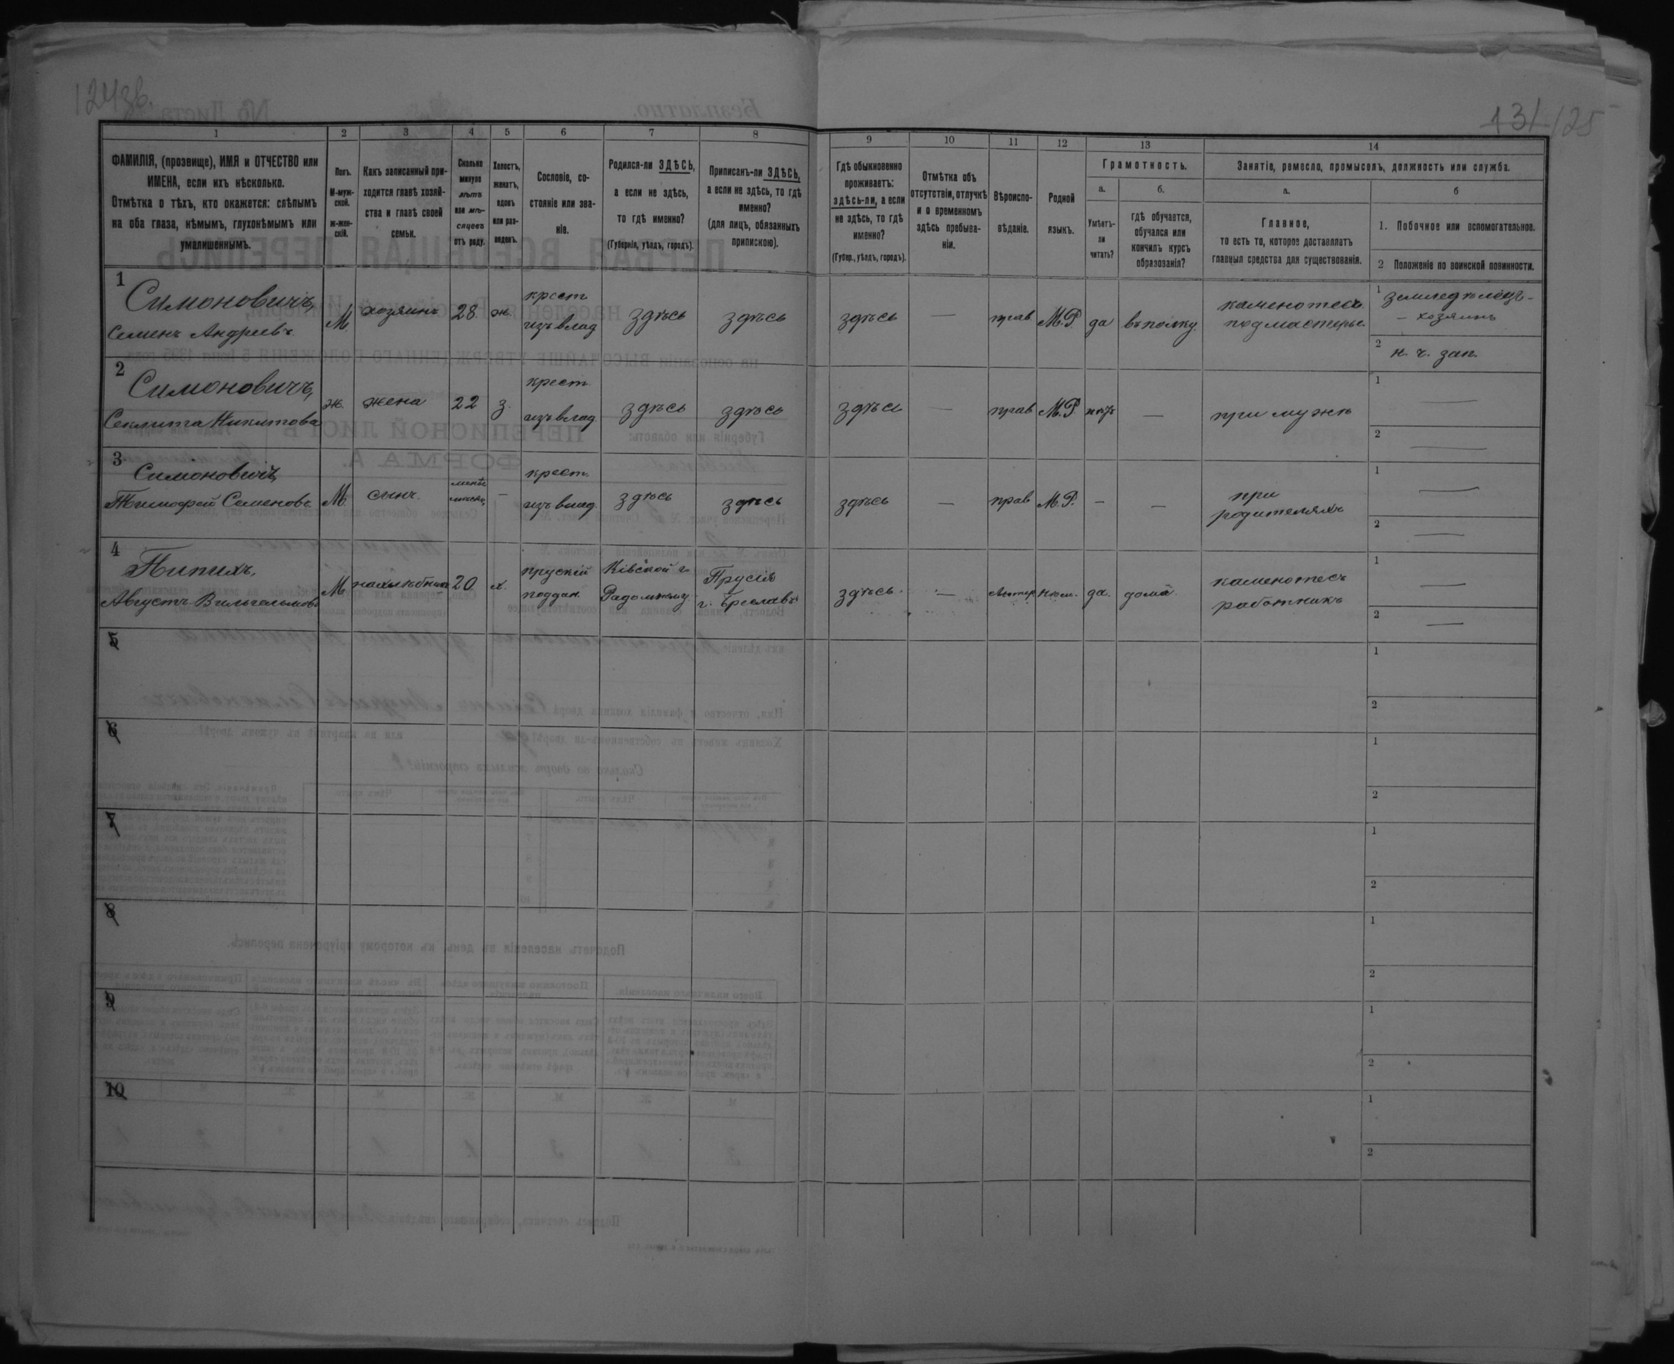 124зв.
131 125
1
2
3
4
5
6
7
8
9
10
11
12
13
14
ФАМИЛІЯ, (прозвище), ИМЯ и ОТЧЕСТВО или
ИМЕНА, если ихъ нѣсколько.
Отмѣтка о тѣхъ, кто окажется: слѣпымъ
на оба глаза, нѣмымъ, глухонѣмымъ или
умалишеннымъ.
Полъ.
М-муж-
ской.
Ж-жен-
скій.
Какъ записанный при-
ходится главѣ хозяй-
ства и главѣ своей
семьи.
Сколько
минуло
лѣтъ
или мѣ-
сяцевъ
отъ роду.
Холостъ,
женатъ,
вдовъ
или раз-
веденъ.
Сословіе, со-
стояніе или зва-
ніе.
Родился-ли ЗДѢСЬ,
а если не здѣсь,
то гдѣ именно?
(Губернія, уѣздъ, городъ).
Приписанъ-ли ЗДѢСЬ,
а если не здѣсь, то гдѣ
именно?
(для лицъ, обязанныхъ
припискою).
Гдѣ обыкновенно
проживаетъ:
здѣсь-ли, а если
не здѣсь, то гдѣ
именно?
(Губер., уѣздъ, городъ).
Отмѣтка объ
отсутствіи, отлучкѣ
и о временномъ
здѣсь пребыва-
ніи.
Вѣроиспо-
вѣданіе.
Родной
языкъ.
Грамотность.
а.
б.
Умѣетъ-
ли
читать?
гдѣ обучается,
обучался или
кончилъ курсъ
образованія?
Занятіе, ремесло, промыселъ, должность или служба.
а.
б
Главное,
то есть то, которое доставляетъ
главныя средства для существованія.
1. Побочное или вспомогательное.
2 Положеніе по воинской повинности.
1 Симоновичъ,
Семенъ Андреевъ
М хозяинъ 28 ж. крест
изъ влад здѣсь здѣсь здѣсь — прав М.Р да въ полку
каменотесъ
подмастерье
1 земледѣлецъ-
- хозяинъ
2 н. ч. зап.
2 Симоновичъ,
Никитова
ж. жена 22 з. крест
изъ влад здѣсь здѣсь здѣсь — прав М.Р нѣтъ — при мужѣ
1 —
2 —
3 Симоновичъ
Тимофей Семеновъ
М. сынъ. — крест.
изъ влад здѣсь здѣсь здѣсь — прав М.Р. - —
при
родителяхъ
1 —
2 —
4
Августъ Вильгельмовъ
М 20 х. прускій
поддан. Кіевской г.
Прусіи
г. Бреславъ здѣсь. — нѣм. да. дома
каменотесъ
работникъ
1 —
2 —
5
1
2
6
1
2
7
1
2
8
1
2
9
1
2
10
1
2